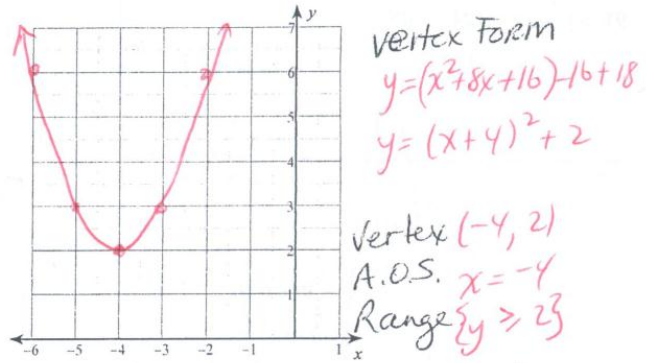 y
7
6
5
4
3
2
1
-6 -5 -4 -3 -2 -1 1 x
Vertex Form
y=(x²+8x+16)-16+18
y=(x+4)²+2
Vertex (-4, 2)
A.O.S. x=-4
Range {y ≥ 2}